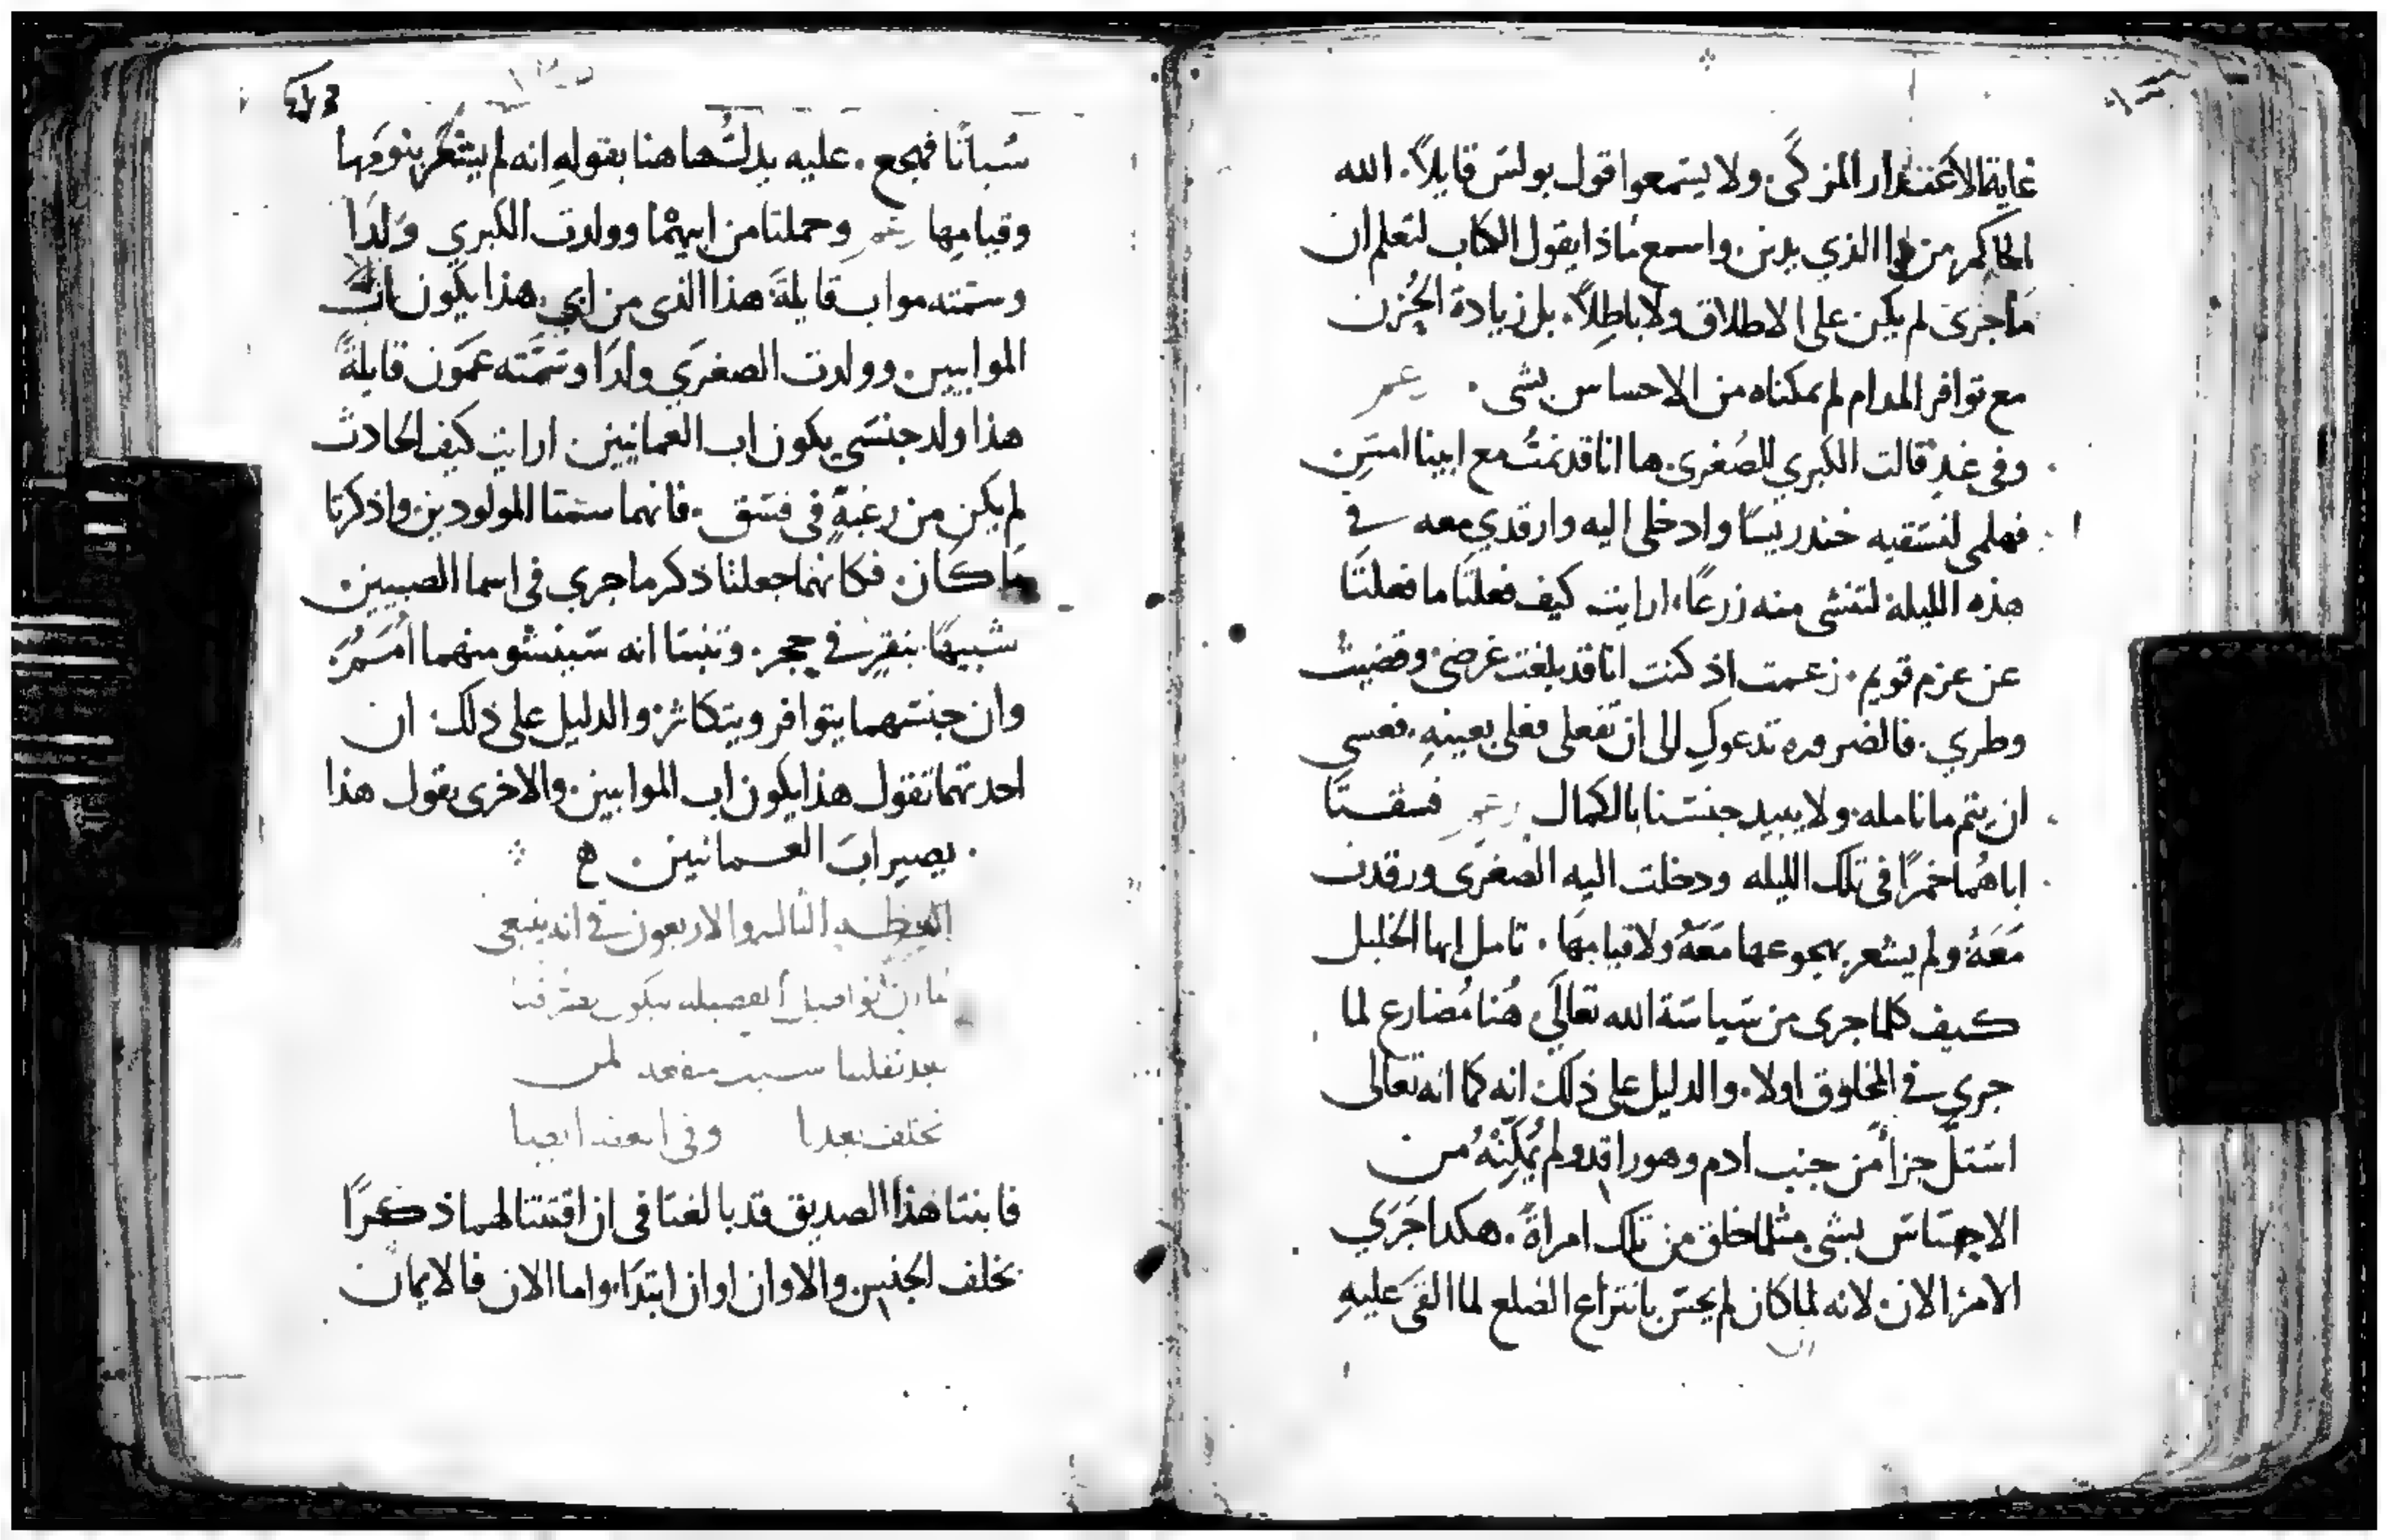 غاية الاعتذار المزكى. ولا يستمعوا قول بولس قايلاً. الله
الحاكم من الذي يدين. واسمع ماذا يقول الكتاب لتعلم ان
ما جرى لم يكن على الاطلاق ولا باطلاً. بل زيادة الحزن
مع توافر المدام لم يمكناه من الاحساس بشى.
وفي غدٍ قالت الكبري للصغرى. ها انا قد نمتُ مع ابينا امسَ
فهلمى لنسقيه خندريسًا وادخلى اليه وارقدي معه في
هذه الليلة لتنشى منه زرعًا. ارايت كيف فعلتا ما فعلتا
عن عزم قويم. زعمت اذ كنت انا قد بلغت غرضى. وقضيت
وطري. فالضروره تدعوكِ الى ان تفعلى فعلى بعينهِ. فعسى
ان يتم ما نامله. ولا يبيد جنسنا بالكمال فسقتا
اباهُما خمرًا في تلك الليله ودخلت اليه الصغرى ورقدت
مَعَهُ ولم يشعر بهجوعها مَعَهُ ولا قيامها. تامل ايها الخليل
كيف كلما جرى من سياسة الله تعالَى هُنا مُضارع لما
جري في المخلوق اولا. والدليل على ذلك انه كما انه تعالى
استلّ جزاً من جنب ادم وهو راقد ولم يُمكِّنْهُ من
الاحساس بشى. مثلما خلق من تلك امراةً. هكدا جَرَي
الامر الان. لانه لما كان لم يحس بانتزاع الضلع لما القىَ عليهِ
سُباتًا فهجع. عليه يدلُّ هاهنا بقولهِ انه لم يشعر بنومها
وقيامِها وحملتا من ابيهما وولدت الكبري وَلدًا
وسمته مواب قايلةً هذا الذى من ابى. هذا يكون اب
الموابيين. وولدت الصغرَي ولدًا وسَمَّته عَمَون قايلةً
هذا ولد جنسي يكون اب العمانيين. ارايت كيف الحادث
لم يكن من رغبةٍ في فسق. فانهما سمتا المولودين. واذكرتا
ما كان. فكانهما جعلتا ذكر ما جري في اسما الصبيين.
شبيهًا بنقرٍ في حجر. وتنبتا انه سَينشو منهما اممٌ
وان جنسهما يتوافر ويتكاثر. والدليل على ذلك ان
احدتهما تقول هذا يكون اب الموابيين. والاخرى يقول هذا
يصير ابَ العمانيين.
العظه الثالثه والاربعون في انه ينبغي
سبب منفعه لمن
وفي
فابنتا هذا الصديق قد بالغتا في ان اقتنتا لهما ذكرًا
بخلف الجنس. والاوان اوان ابتدَاء. واما الان فالايمان